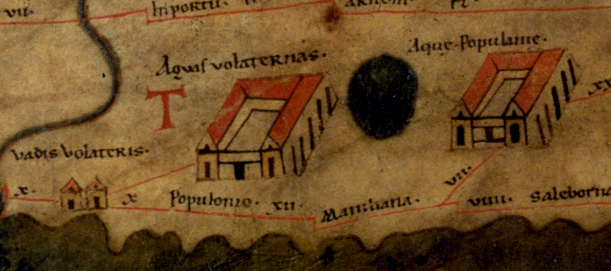 VII. In portu
Aquis volaternas.
Aque Populanie.
T
vadis volateris.
X.
X
Populonio. XII
Manliana.
VII.
VIIII. Saleborna